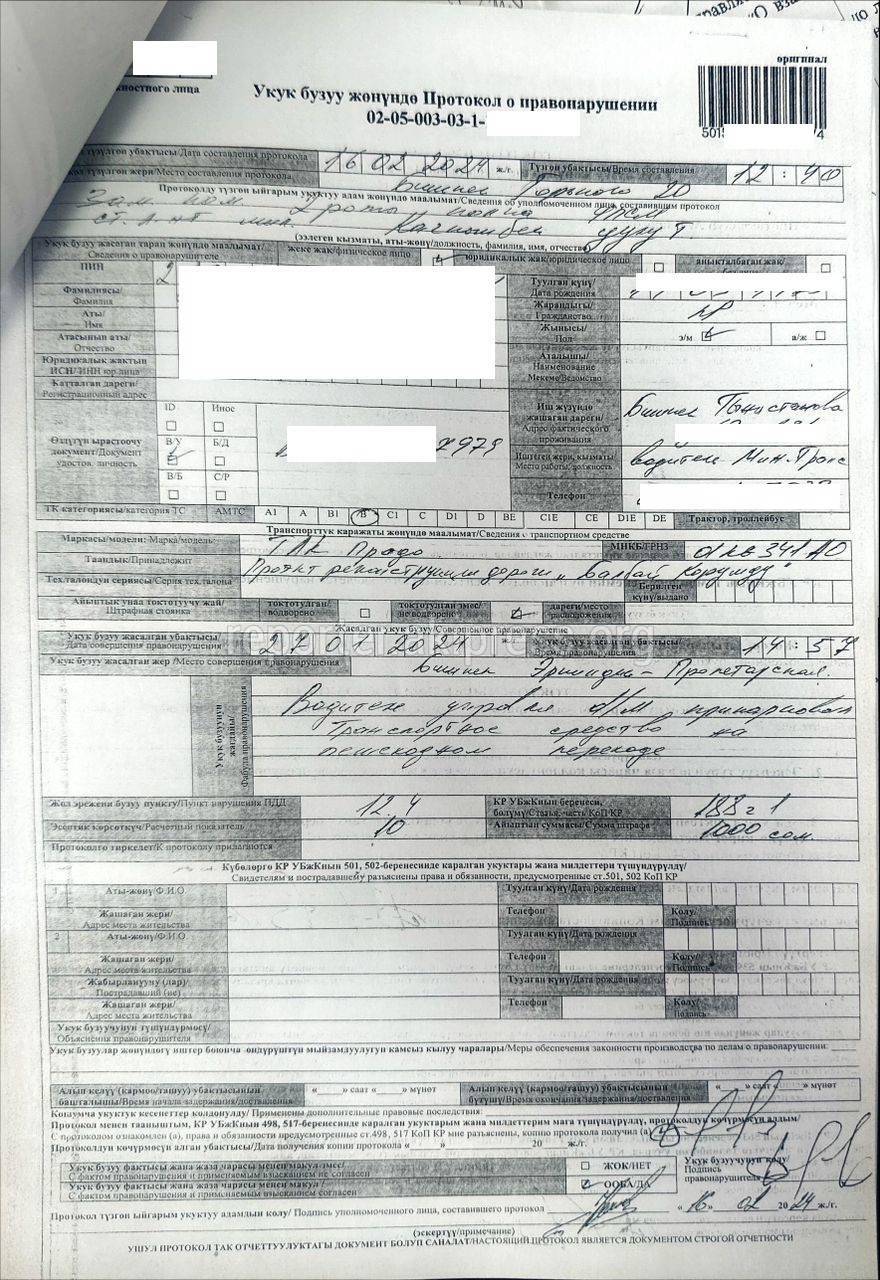 оригинал
ностного лица
Укук бузуу жөнүндө Протокол о правонарушении
02-05-003-03-1-
5015 4
түзүлгөн убактысы/Дата составления протокола 16 02 2024 ж./г. Түзгөн убактысы/Время составления 12:40
түзүлгөн жери/Место составления протокола Бишкек Горького 20
Протоколду түзгөн ыйгарым укуктуу адам жөнүндө маалымат/Сведения об уполномоченном лице, составившим протокол
Зам ком 2 роты
ст. л-нт мил.
(ээлеген кызматы, аты-жөнү/должность, фамилия, имя, отчество)
Укук бузуу жасаган тарап жөнүндө маалымат/
Сведения о правонарушителе
жеке жак/физическое лицо
юридикалык жак/юридическое лицо
аныкталбаган жак/
ПИН 2
Фамилиясы/
Фамилия
Аты/
Имя
Атасынын аты/
Отчество
Юридикалык жактын
ИСН/ИНН юр.лица
Катталган дареги/
Регистрационный адрес
Туулган күнү/
Дата рождения
Жарандыгы/
Гражданство
КР
Жынысы/
Пол
э/м
а/ж
Аталышы/
Наименование
Мекеме/Ведомство
Иш жүзүндө
жашаган дареги/
Адрес фактического
проживания
Бишкек Тыныстанова
Өздүгүн ырастоочу
документ/Документ
удостов. личность
ID
Иное
В/У
Б/Д
В/Б
С/Р
7979
Иштеген жери, кызматы/
Место работы, должность
водитель Мин.Транс
Телефон
ТК категориясы/категория ТС АМТС A1 A B1 B C1 C D1 D BE C1E CE D1E DE Трактор, троллейбус
Транспорттук каражаты жөнүндө маалымат/Сведения о транспортном средстве
Маркасы/модели: Марка/модель: ТЛК Прадо МНКБ/ГРНЗ 01KG341AO
Таандык/Принадлежит Проэкт реконструкции дороги „Балбай Корумду"
Тех.талондун сериясы/Серия тех.талона
Берилген
күнү/выдано
Айыптык унаа токтотуучу жай/
Штрафная стоянка
токтотулган/
водворено
токтотулган эмес/
не водворено
дареги/место
расположения
Жасалган укук бузуу/Совершенное правонарушение
Укук бузуу жасалган убактысы/
Дата совершения правонарушения
27 01 2024
Укук бузуу жасалган убактысы/
Время правонарушения
14:57
Укук бузуу жасалган жер /Место совершения правонарушения Бишкек Эркиндик-Пролетарская.
Укук бузуунун
жагдайы/
Фабула правонарушения
Водитель управляя а/м припарковал
Транспортное средство на
пешеходном переходе
Жол эрежени бузуу пункту/Пункт нарушения ПДД 12.4
КР УБжКнын беренеси,
бөлүмү/Статья, часть КоП КР
188 ч 1
Эсептик көрсөткүч/Расчетный показатель 10
Айыптын суммасы/Сумма штрафа 1000 сом.
Протоколго тиркелет/К протоколу прилагаются
Күбөлөргө КР УБжКнын 501, 502-беренесинде каралган укуктары жана милдеттери түшүндүрүлдү/
Свидетелям и пострадавшему разъяснены права и обязанности, предусмотренные ст.501, 502 КоП КР
1 Аты-жөнү/Ф.И.О. Туулган күнү/Дата рождения
Жашаган жери/
Адрес места жительства
Телефон
Колу/
Подпись
2 Аты-жөнү/Ф.И.О. Туулган күнү/Дата рождения
Жашаган жери/
Адрес места жительства
Телефон
Колу/
Подпись
Жабырлануучу (лар)/
Пострадавший (ие)
Туулган күнү/Дата рождения
Жашаган жери/
Адрес места жительства
Телефон
Колу/
Подпись
Укук бузуучунун түшүндүрмөсү/
Объяснения правонарушителя
Укук бузуулар жөнүндөгү иштер боюнча өндүрүштүн мыйзамдуулугун камсыз кылуу чаралары/Меры обеспечения законности производства по делам о правонарушении:
Алып келүү (кармоо/ташуу) убактысынын
башталышы/Время начала задержания/доставления
«____» саат «____» мүнөт
Алып келүү (кармоо/ташуу) убактысынын
бүтүшү/Время окончания задержания/доставления
«____» саат «____» мүнөт
Кошумча укуктук кесепеттер колдонулду/ Применены дополнительные правовые последствия:
Протокол менен тааныштым, КР УБжКнын 498, 517-беренесинде каралган укуктарым жана милдеттерим мага түшүндүрүлдү, протоколдун көчүрмөсүн алдым/
С протоколом ознакомлен (а), права и обязанности предусмотренные ст.498, 517 КоП КР мне разъяснены, копию протокола получил (а)
Протоколдун көчүрмөсүн алган убактысы/Дата получения копии протокола «____» ____ 20 ж./г.
Укук бузуу фактысы жана жаза чарасы менен макул эмес/
С фактом правонарушения и применяемым взысканием не согласен
ЖОК/НЕТ
Укук бузуу фактысы жана жаза чарасы менен макул /
С фактом правонарушения и применяемым взысканием согласен
ООБА/ДА
Укук бузуучунун колу/
Подпись
правонарушителя
Протокол түзгөн ыйгарым укуктуу адамдын колу/ Подпись уполномоченного лица, составившего протокол «16» 02 2024 ж./г.
(эскертүү/примечание)
УШУЛ ПРОТОКОЛ ТАК ОТЧЕТТУУЛУКТАГЫ ДОКУМЕНТ БОЛУП САНАЛАТ/НАСТОЯЩИЙ ПРОТОКОЛ ЯВЛЯЕТСЯ ДОКУМЕНТОМ СТРОГОЙ ОТЧЕТНОСТИ